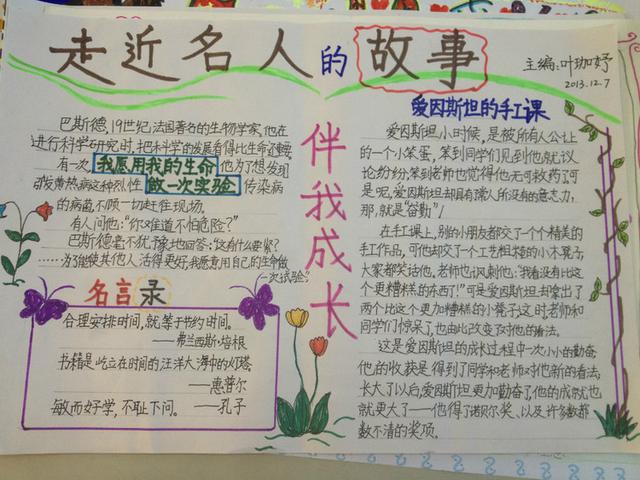 走近名人的故事
主编:叶珈妤
2013.12.7
巴斯德,19世纪法国著名的生物学家,他在
进行科学研究时,把科学的发展看得比生命还重要。
有一次, 我愿用我的生命 他为了想发现
黄热病这种烈性 做一次实验 传染病
的病菌,不顾一切赶往现场。
有人问他:“你难道不怕危险?”
巴斯德毫不犹豫地回答:“这有什么要紧?
……为了能使其他人活得更好,我愿意用自己的生命做
一次试验。”
名言录
合理安排时间,就等于节约时间。
——弗兰西斯·培根
书籍是屹立在时间的汪洋大海中的灯塔
——惠普尔
敏而好学,不耻下问。——孔子
伴我成长
爱因斯坦的手工课
爱因斯坦小时候,是被所有人公认
的一个小笨蛋,笨到同学们见到他就议
论纷纷,笨到老师也觉得他无可救药了。可
是呢,爱因斯坦却具有常人所没有的意志力,
那,就是“奋勤”!
在手工课上,别的小朋友都交了个个精美的
手工作品,可他却交了一个工艺粗糙的小木凳子,
大家都笑话他,老师也讽刺他:“我看没有比这
个更糟糕的东西了!”可是爱因斯坦却拿出了
两个比这个更加糟糕的小凳子,这时,老师和
同学们惊呆了,也由此改变了对他的看法。
这是爱因斯坦的成长过程中一次小小的勤奋
他的收获是得到了同学和老师对他新的看法。
长大了以后,爱因斯坦更加勤奋了,他的成就也
就更大了——他得了诺贝尔奖、以及许多数都
数不清的奖项。